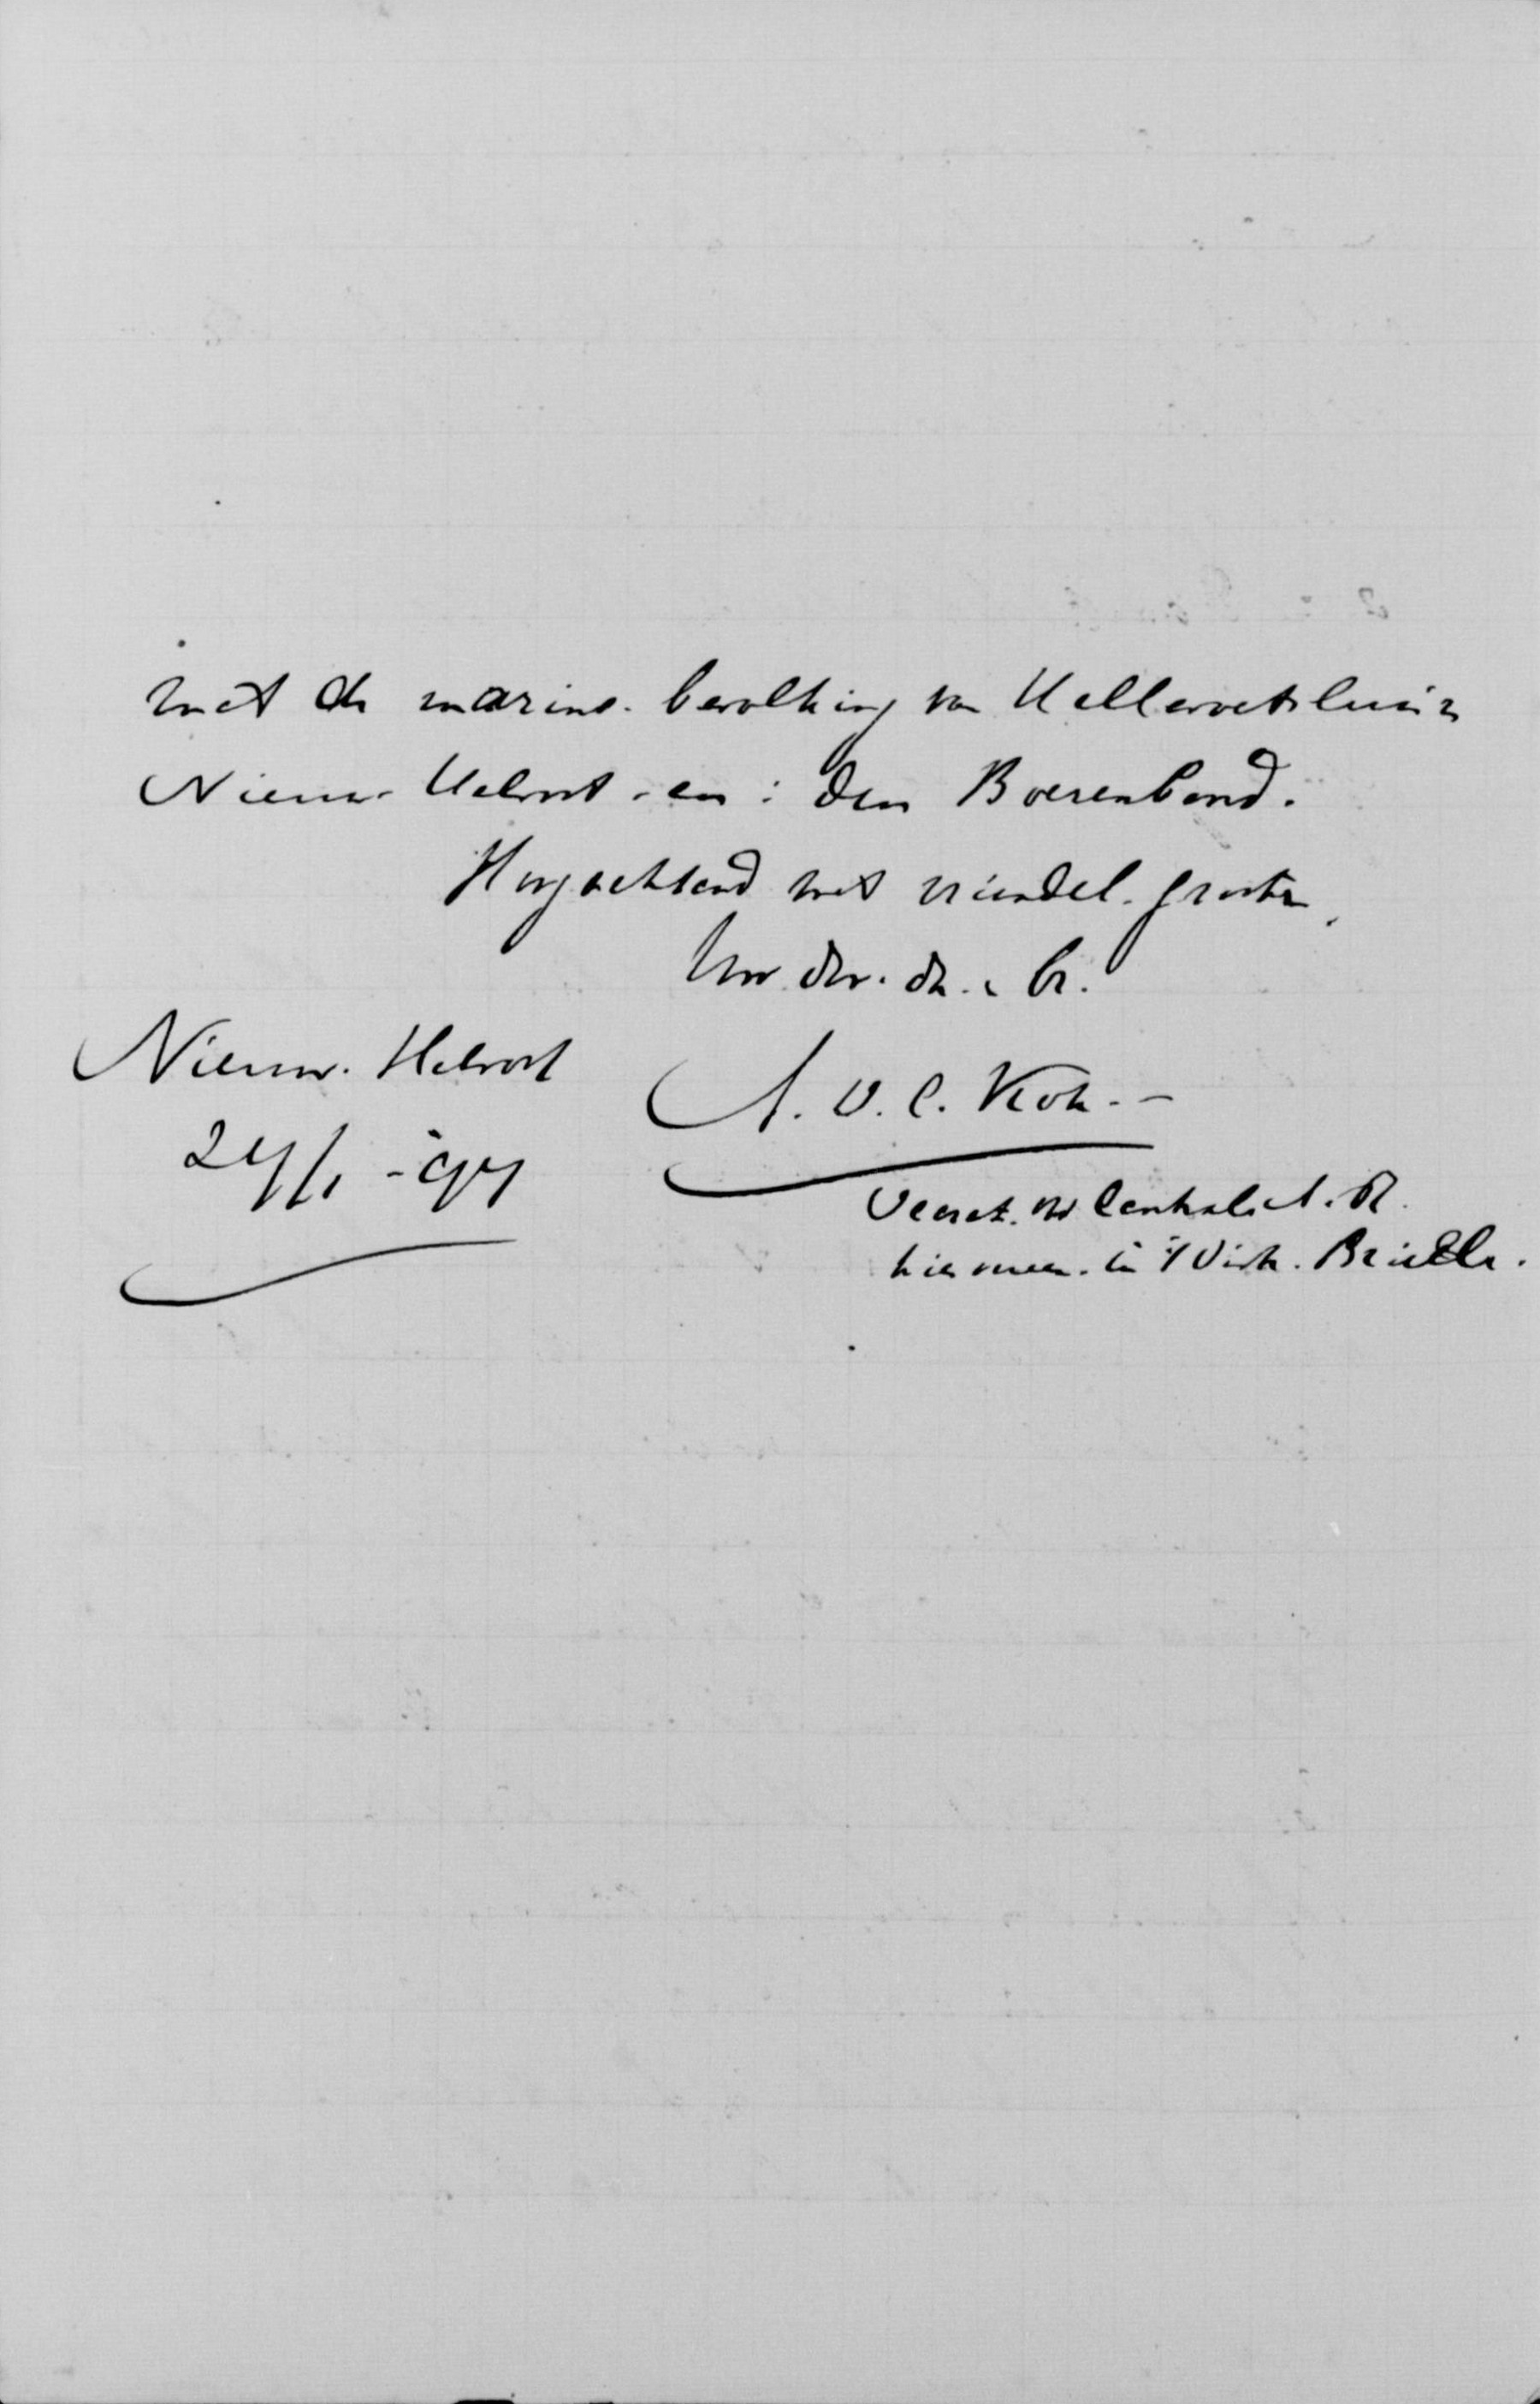 met de marine-bevolking van Hellevoetsluis
Nieuw-Helvoet - en: den Boerenbond.
Hoogachtend met vriendel. groeten,
Uw dw. dr. & br.
Nieuw-Helvoet
A. V. C. Kok.-
24/1 -'97
Secret. vd Centrale A. R.
kiesveren. in 't Distr. Brielle.